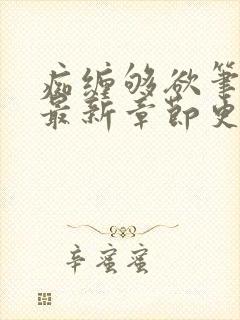 痴缠够欲笔
最新章节史
辛蜜蜜